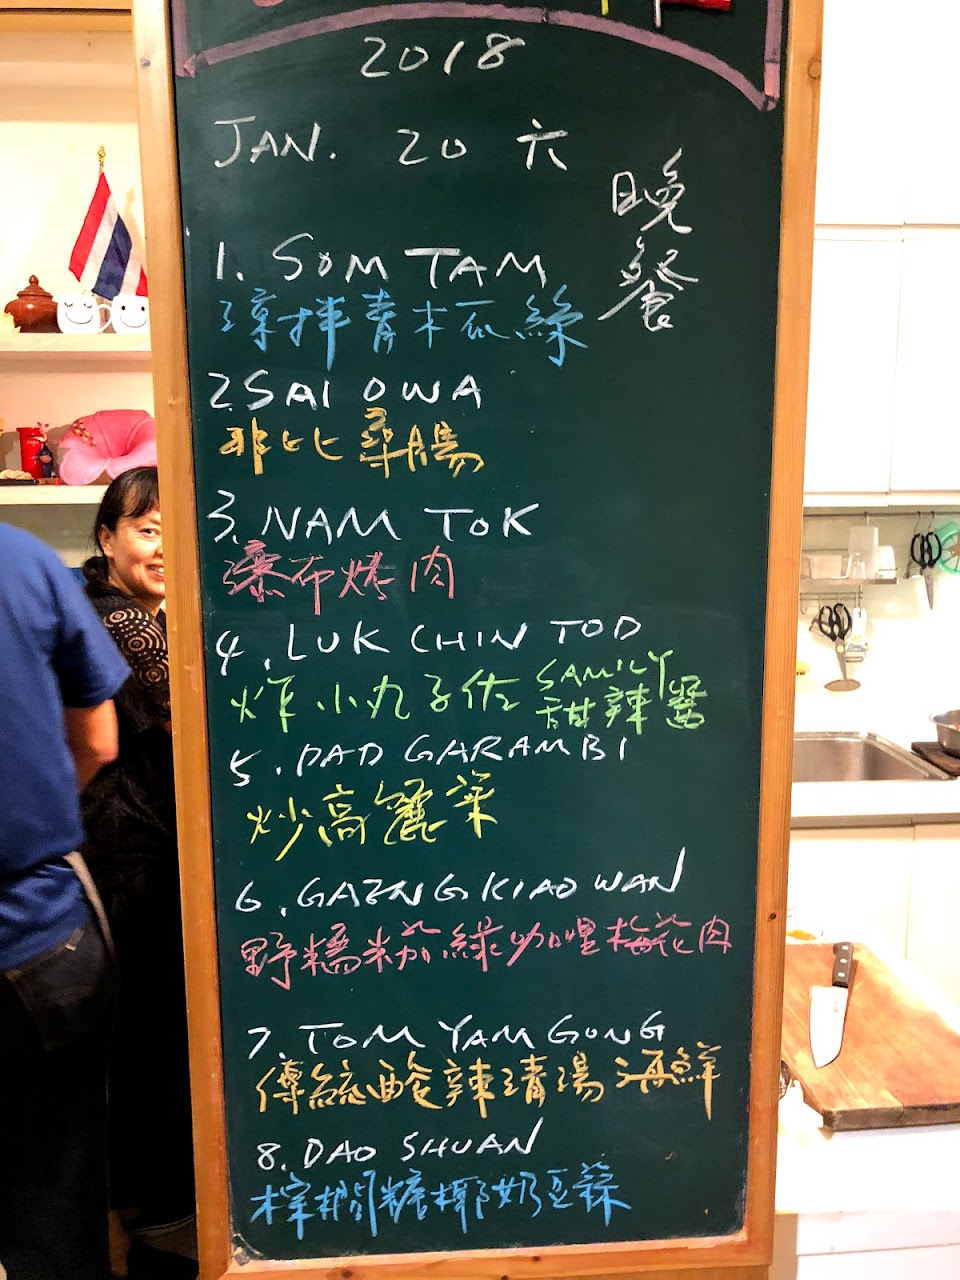 2018
JAN. 20 六
晚餐
1. SOM TAM
涼拌青木瓜絲
2. SAI OWA
非比尋腸
3. NAM TOK
瀑布烤肉
4. LUK CHIN TOD
炸小丸子佐 SAMILY 甜辣醬
5. PAD GARAMBI
炒高麗菜
6. GAENG KIAO WAN
野糯米茄綠咖哩梅花肉
7. TOM YAM GONG
傳統酸辣清湯海鮮
8. DAO SHUAN
棕櫚糖椰奶豆蒜